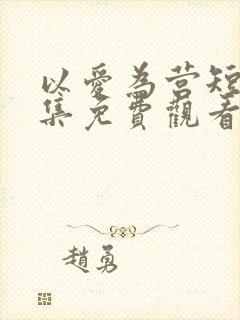 以愛為营短
集免費觀看
趙勇